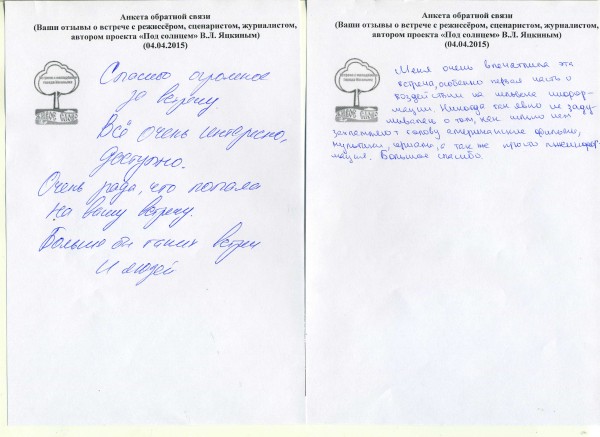 Анкета обратной связи
(Ваши отзывы о встрече с режиссёром, сценаристом, журналистом,
автором проекта «Под солнцем» В.Л. Яцкиным)
(04.04.2015)
Спасибо огромное
за встречу.
Всё очень интересно,
доступно.
Очень рада, что попала
на вашу встречу.
Больше бы таких встреч
и людей
Анкета обратной связи
(Ваши отзывы о встрече с режиссёром, сценаристом, журналистом,
автором проекта «Под солнцем» В.Л. Яцкиным)
(04.04.2015)
Меня очень впечатлила эта
встреча, особенно первая часть о
воздействии на человека инфор-
мации. Никогда так явно не заду-
мывалась о том, как сильно нам
голову американские фильмы,
мультики, сериалы, а так же просто
Большое спасибо.